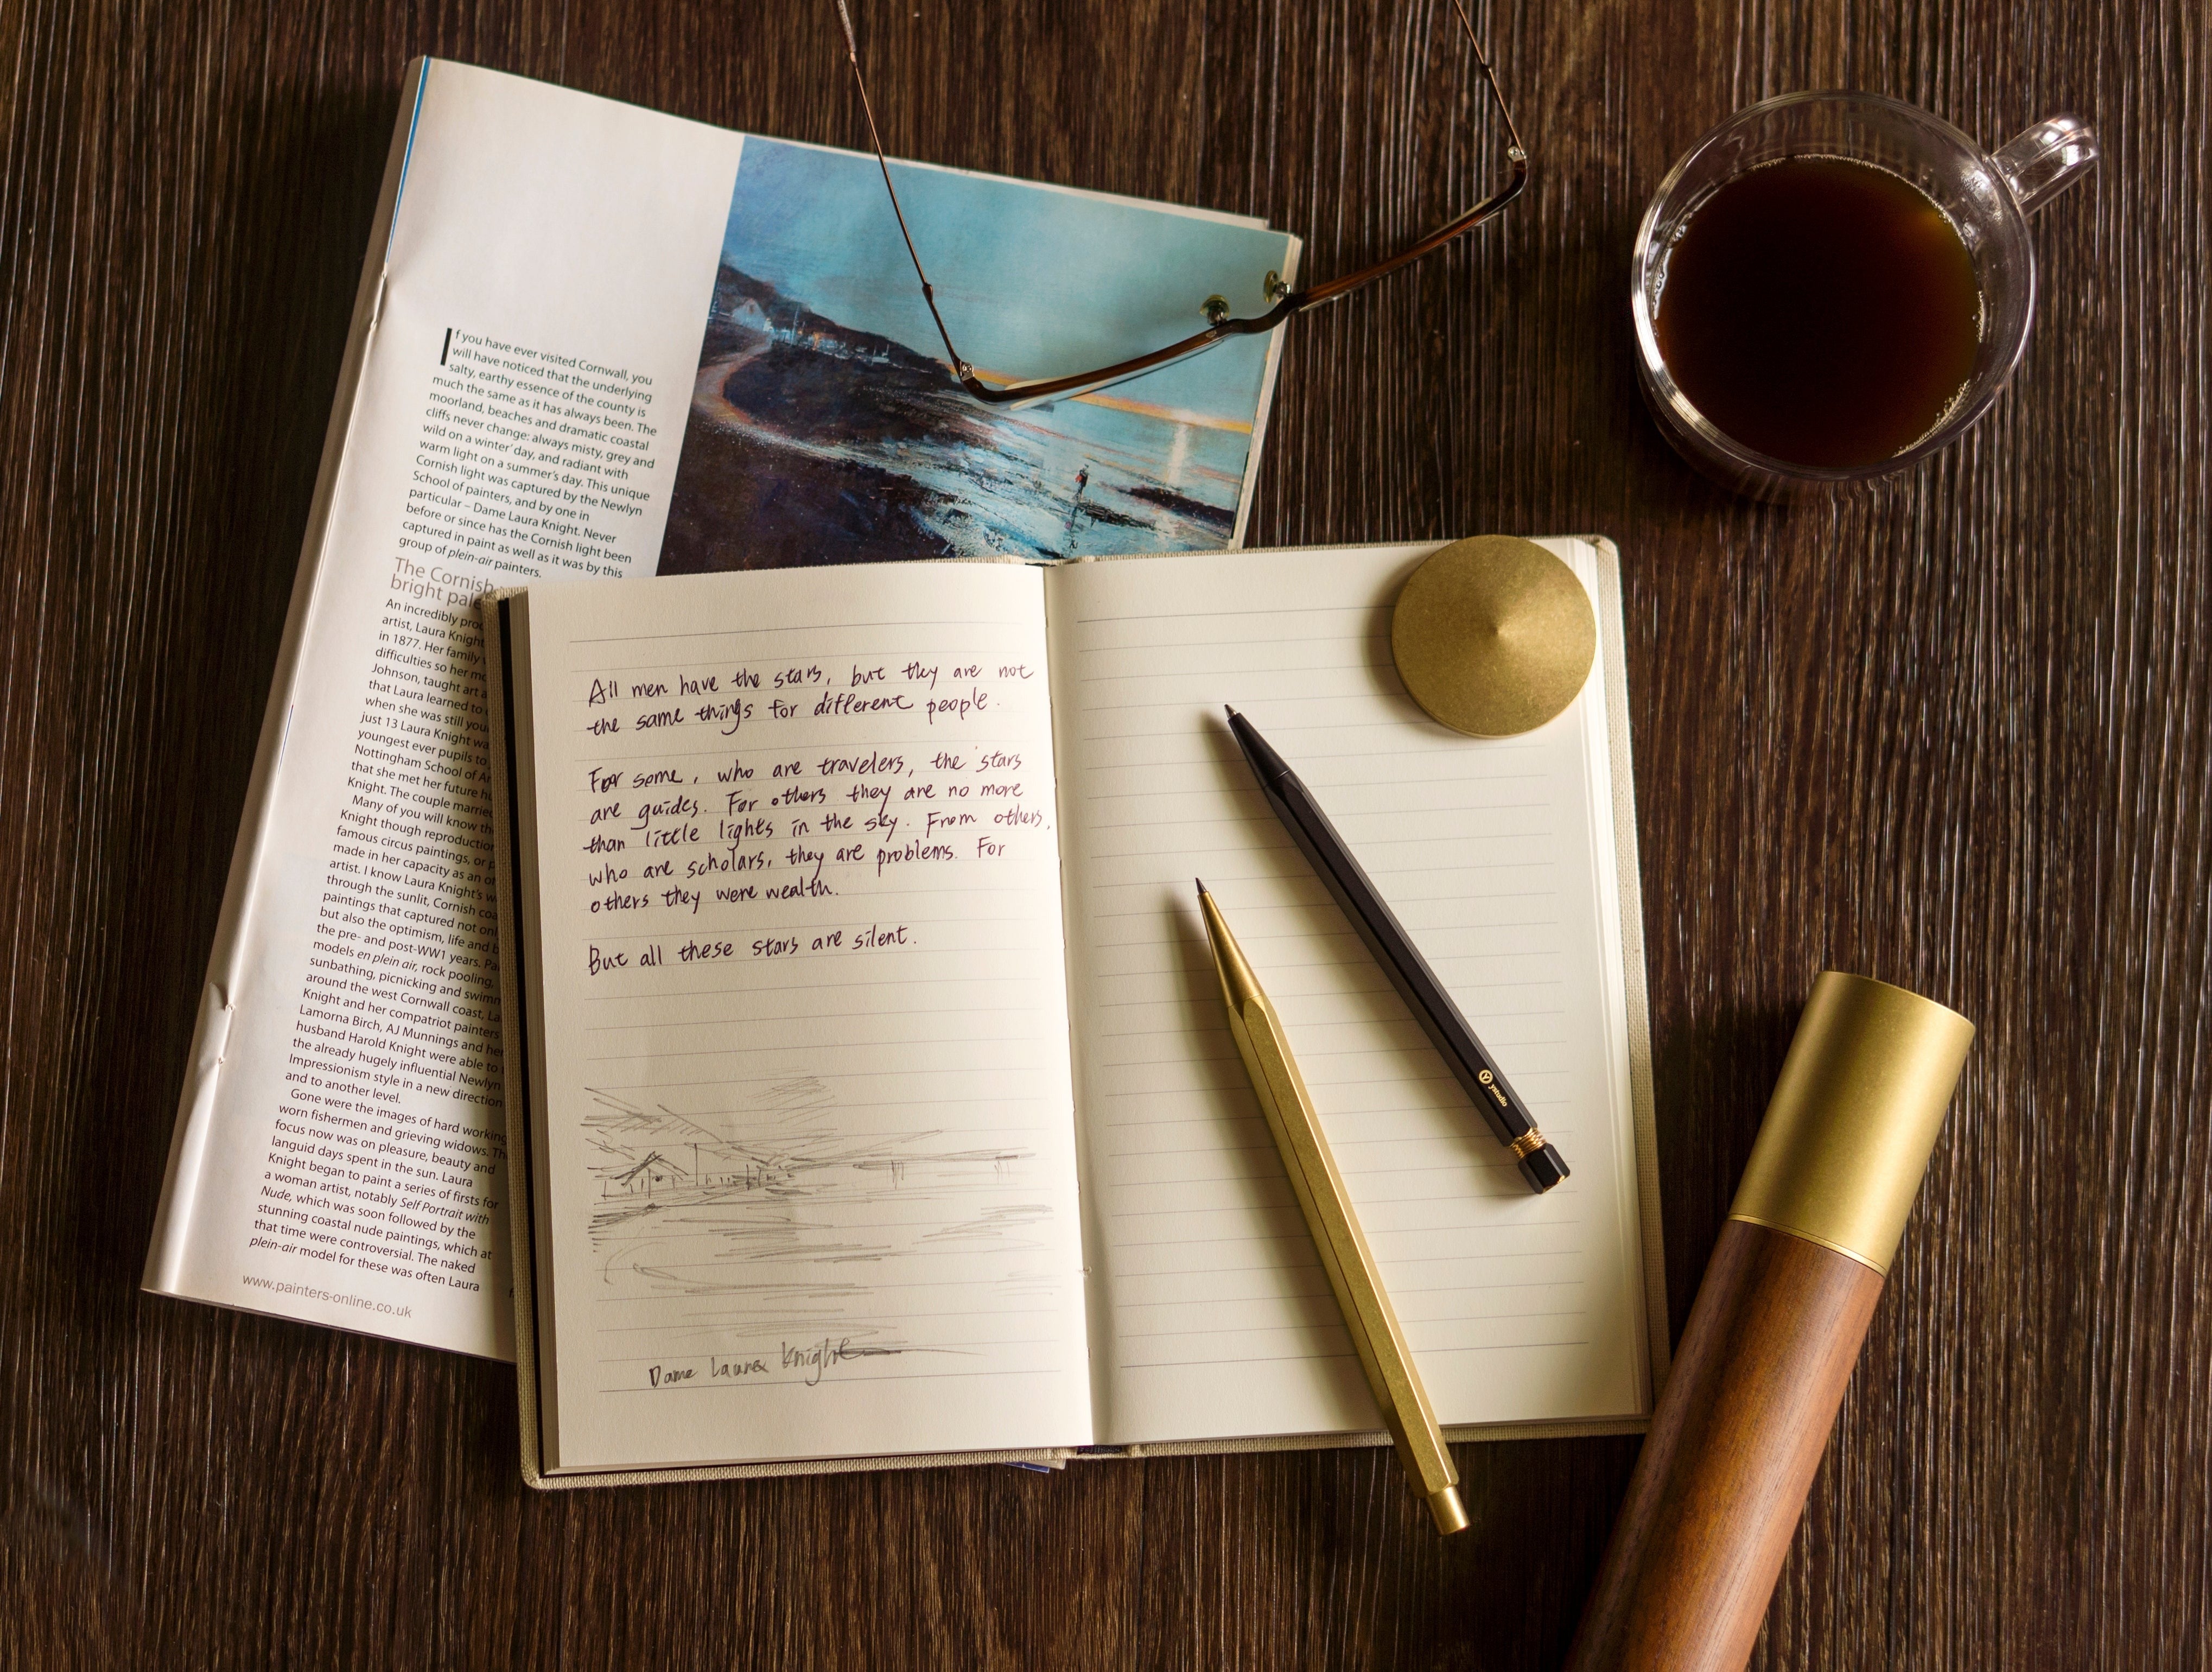 If you have ever visited Cornwall, you
will have noticed that the underlying
salty, earthy essence of the county is
much the same as it has always been. The
moorland, beaches and dramatic coastal
cliffs never change: always misty, grey and
wild on a winter' day, and radiant with
warm light on a summer's day. This unique
Cornish light was captured by the Newlyn
School of painters, and by one in
particular – Dame Laura Knight. Never
before or since has the Cornish light been
captured in paint as well as it was by this
group of plein-air painters.
The Cornish
bright
An incredibly
artist, Laura Knight
in 1877. Her family
difficulties so her
Johnson, taught art
that Laura learned to
when she was still
just 13 Laura Knight
youngest ever pupils to
Nottingham School of
that she met her future
Knight. The couple married
Many of you will know
Knight though
famous circus paintings, or
made in her capacity as an
artist. I know Laura Knight's
through the sunlit, Cornish
paintings that captured not
but also the optimism, life and
the pre- and post-WW1 years.
models en plein air, rock pooling,
sunbathing, picnicking and
around the west Cornwall coast,
Knight and her compatriot painters
Lamorna Birch, AJ Munnings and her
husband Harold Knight were able to
the already hugely influential Newlyn
Impressionism style in a new direction
and to another level.
Gone were the images of hard working
worn fishermen and grieving widows.
focus now was on pleasure, beauty and
languid days spent in the sun. Laura
Knight began to paint a series of firsts for
a woman artist, notably Self Portrait with
Nude, which was soon followed by the
stunning coastal nude paintings, which at
that time were controversial. The naked
plein-air model for these was often Laura
www.painters-online.co.uk
All men have the stars, but they are not
the same things for different people.
For some, who are travelers, the stars
are guides. For others they are no more
than little lights in the sky. From others,
who are scholars, they are problems. For
others they were wealth.
But all these stars are silent.
Dame Laura Knight
ystudio